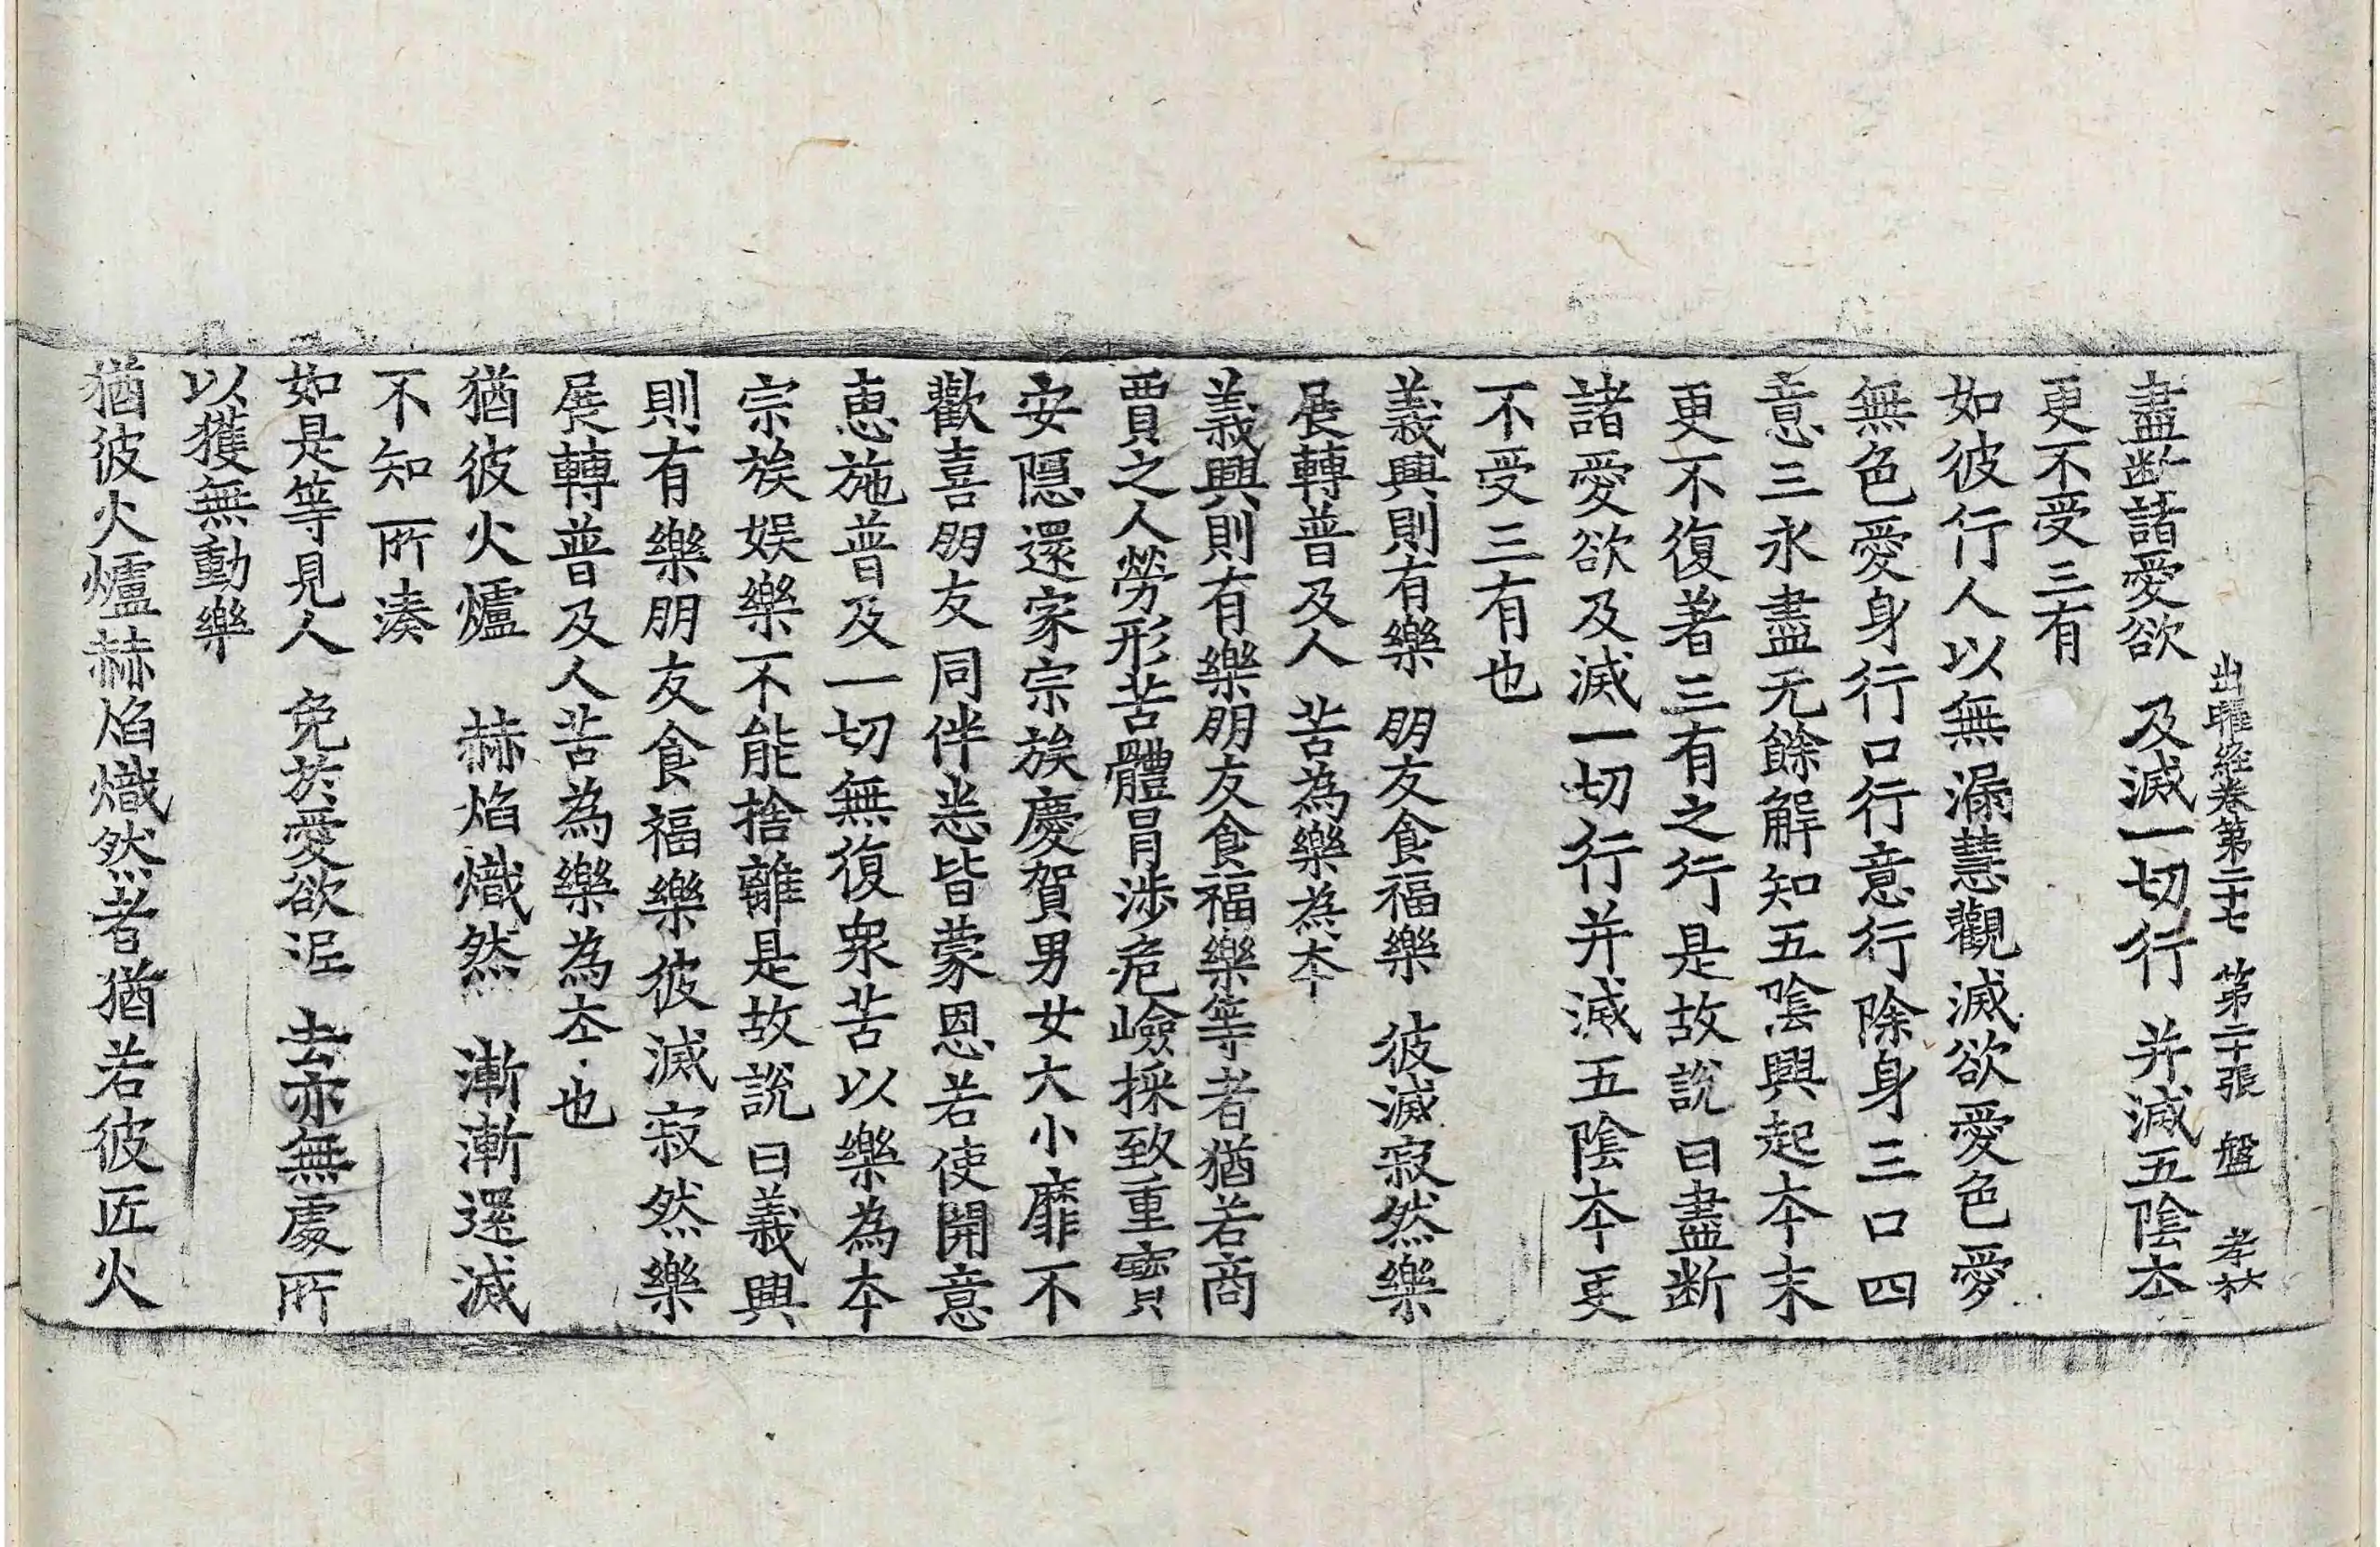 出曜経卷第二十七　第二十張　盤　孝林
盡断諸愛欲　及滅一切行　并滅五陰夲
更不受三有
如彼行人以無漏慧觀滅欲愛色愛
無色愛身行口行意行除身三口四
意三永盡无餘解知五陰興起夲末
更不復著三有之行是故說曰盡断
諸愛欲及滅一切行并滅五陰夲更
不受三有也
義興則有樂　朋友食福樂　彼滅寂然樂
展轉普及人　苦為樂為夲
義興則有樂朋友食福樂等者猶若商
賈之人勞形苦體冐涉危嶮採致重寶
安隱還家宗族慶賀男女大小靡不
歡喜朋友同伴悉皆蒙恩若使開意
恵施普及一切無復衆苦以樂為夲
宗族娱樂不能捨離是故說曰義興
則有樂朋友食福樂彼滅寂然樂
展轉普及人苦為樂為夲也
猶彼火爐　赫焰熾然　漸漸還滅
不知所湊
如是等見人　免於愛欲泥　去亦無處所
以獲無動樂
猶彼火爐赫焰熾然者猶若彼匠火